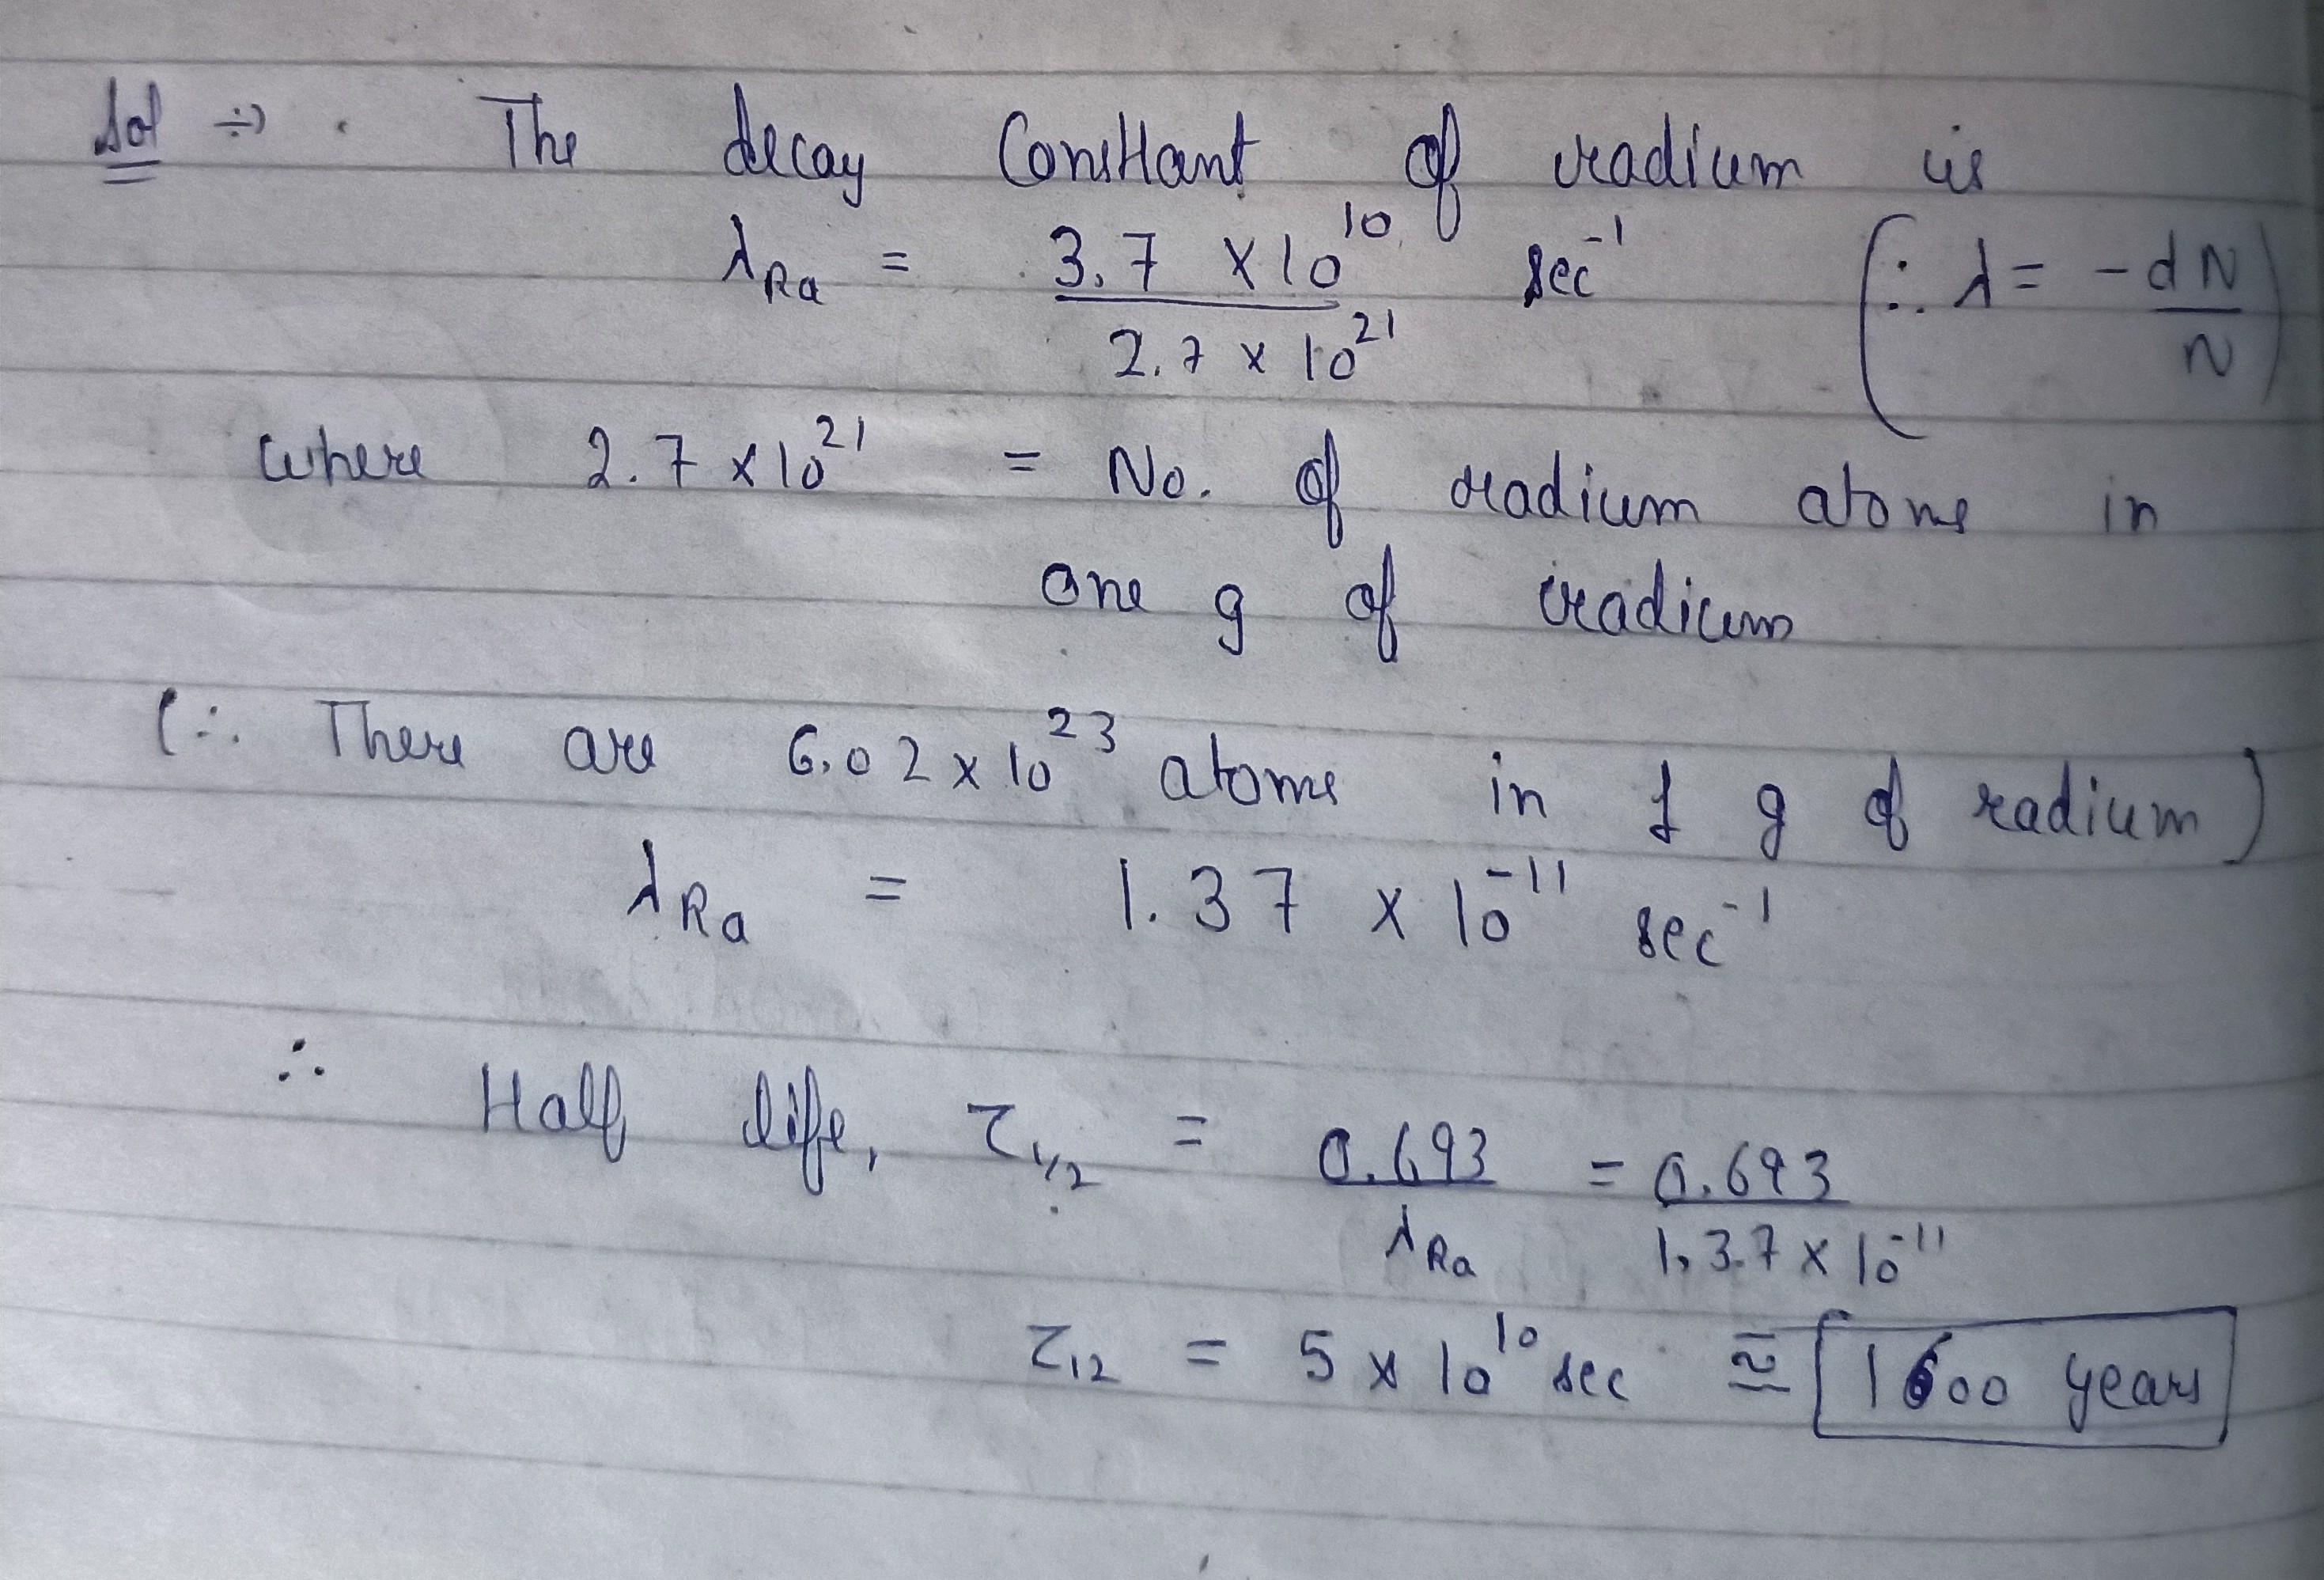 Sol ÷) . The decay Constant of radium is
λRa = 3.7 × 10^10 / 2.7 × 10^21 sec^-1 (∴ λ = -dN/N)
where 2.7 × 10^21 = No. of radium atoms in
one g of radium
(∴ There are 6.02 × 10^23 atoms in 1 g of radium)
λRa = 1.37 × 10^-11 sec^-1
∴ Half life, τ1/2 = 0.693/λRa = 0.693/1.37 × 10^-11
τ12 = 5 × 10^10 sec ≅ 1600 years